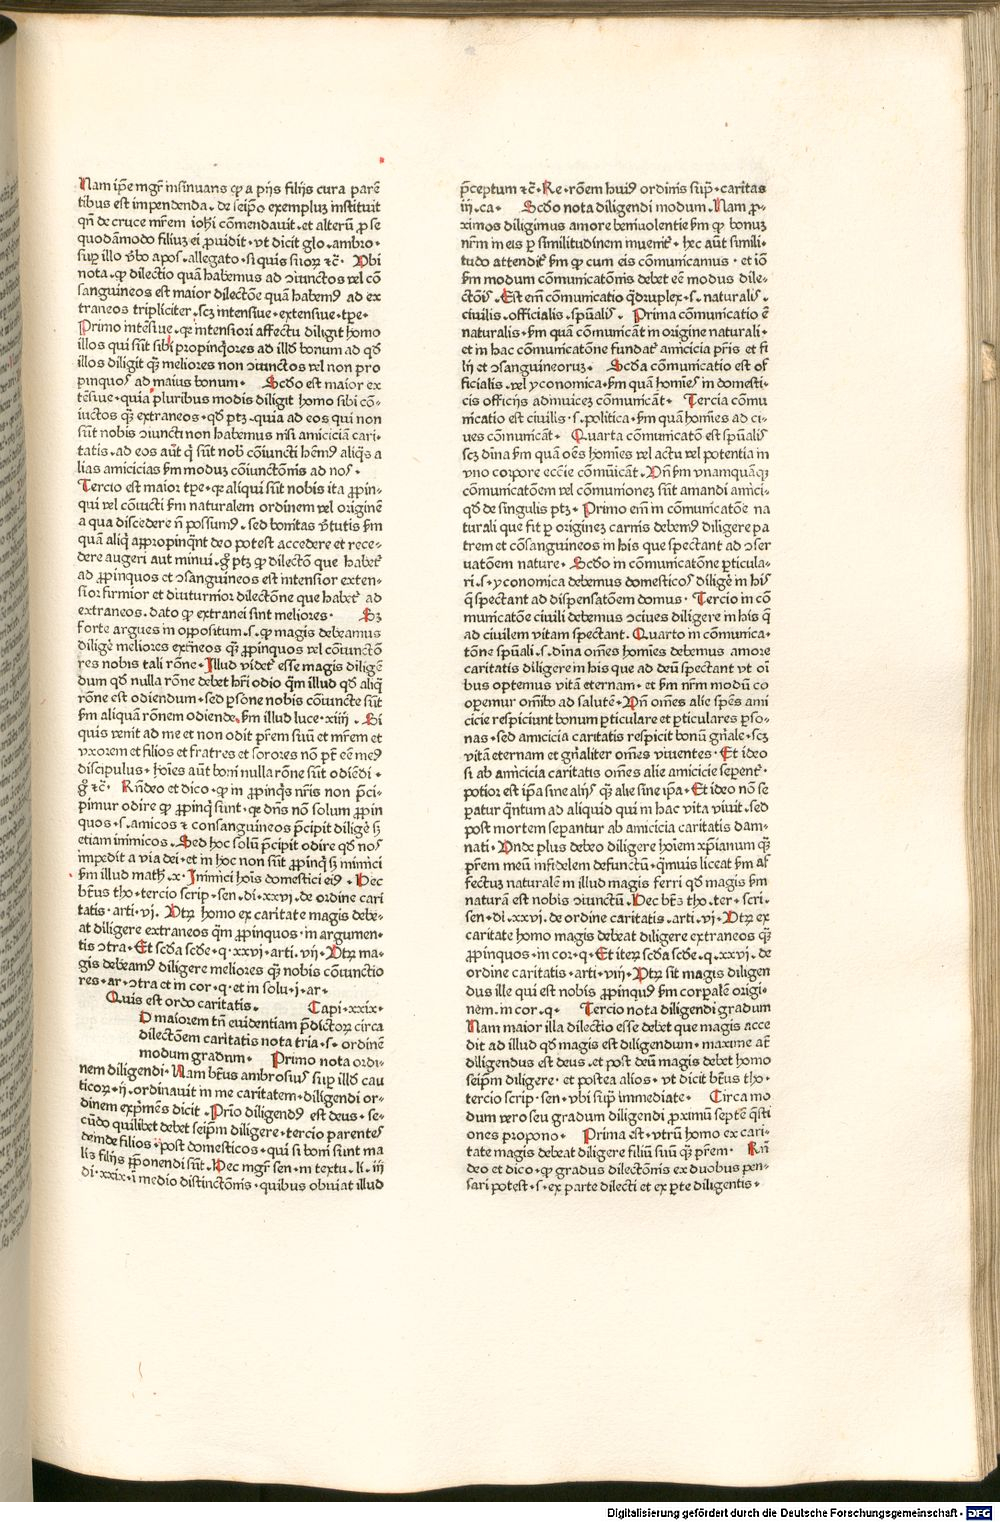 Nam ip̄e mgr̄ insinuans ꝙ a pijs filijs cura parē
tibus est impendenda. de seip̄o exempluꝫ instituit
qn̄ de cruce mr̄em iohi cōmendauit. et alterū ꝓ se
quodāmodo filiuꝫ ei ꝓuidit. vt dicit glo. ambro.
suꝑ illo v̄bo apos. allegato. si quis suoꝝ ⁊c̄. Vbi
nota. ꝙ dilectio quā habemus ad ↄiunctos vel cō
sanguineos est maior dilectōne quā habemꝰ ad ex
traneos tripliciter. scꝫ intensiue. extensiue. tp̄e.
Primo intēsiue. qꝛ intensiori affectu diligit homo
illos qui sūt sibi propinq̄ores ad illd̄ bonum ad qd̄
illos diligit qꝫ̄ meliores non ↄiunctos vel non pro
pinquos ad maius bonum. Scd̄o est maior ex
tēsiue. quia pluribus modis diligit homo sibi cō
iuctos qꝫ̄ extraneos. qd̄ ptꝫ. quia ad eos qui non
sūt nobis ↄiuncti non habemus nisi amiciciā cari
tatis. ad eos aūt q̄ sūt nob̄ cōiuncti hēmꝰ aliq̄s a
lias amicicias ẜm moduꝫ cōiunctōnis ad nos.
Tercio est maior tp̄e. qꝛ aliqui sūt nobis ita ꝓpin
qui vel cōiūcti ẜm naturalem ordinem vel originē
a qua discedere n̄ possumꝰ. sed bonitas v̄tutis ẜm
quā aliq̄ appropinq̄nt deo potest accedere et rece
dere augeri aut minui. g̊ ptꝫ ꝙ dilectō que habet̄
ad ꝓpinquos et ↄsanguineos est intensior exten
sior firmior et diuturnior dilectōne que habet̄ ad
extraneos. dato ꝙ extranei sint meliores. Sꝫ
forte argues in oppositum. s. ꝙ magis debeamus
diligē meliores exr̄neos qꝫ̄ ꝓpinquos vel cōiunctō
res nobis tali rōne. Illud videt̄ esse magis diligē
dum qd̄ nulla rōne debet hr̄i odio q̄m illud qd̄ aliq̄
rōne est odiendum. sed ꝑsone nobis cōiuncte sūt
ẜm aliquā rōnem odiende. ẜm illud luce. xiiij. Si
quis venit ad me et non odit pr̄em suū et mr̄em et
vxorem et filios et fratres et sorores nō pt̄ eē meꝰ
discipulus. hoīes aūt boni nulla rōne sūt odiēdi.
g̊ ⁊c̄. Rn̄deo et dico. ꝙ in ꝓpinq̄s nr̄is non p̄ci
pimur odire ꝙ ꝓpinq̄ sunt. qꝛ dn̄s nō solum ꝓpin
quos. s. amicos ⁊ consanguineos p̄cipit diligē sꝫ
etiam inimicos. Sed hoc solū p̄cipit odire qd̄ nos
impedit a via dei. et in hoc non sūt ꝓpinq̄ sꝫ inimici
ẜm illud math̄. x. Inimici hoīs domestici eiꝰ. Hec
btūs tho. tercio scrip. sen. di. xxvi. de ordine cari
tatis. arti. vj. Vtꝝ homo ex caritate magis debe
at diligere extraneos q̄m ꝓpinquos. in argumen
tis ↄtra. Et scd̄a scd̄e. q. xxvi. arti. vij. Vtꝝ ma
gis debeamꝰ diligere meliores qꝫ̄ nobis cōiunctio
res. ar. ↄtra et in cor. q. et in solu. j. ar.
Quis est ordo caritatis. Capi. xxix.
D maiorem tn̄ euidentiam p̄dictoꝝ circa
dilectōem caritatis nota tria. s. ordinē
modum gradum. Primo nota ordi
nem diligendi. Nam btūs ambrosius suꝑ illd̄ cau
ticoꝝ. ij. ordinauit in me caritatem. diligendi or
dinem exprimēs dicit. Prīo diligendꝰ est deus. se
cūdo quilibet debet seip̄m diligere. tercio parentes
deinde filios. post domesticos. qui si boni sunt ma
lis filijs p̄ponendi sūt. Hec mgr̄ sen. in textu. li. iij
di. xxix. in medio distinctōnis. quibus obuiat illud
p̄ceptum ⁊c̄. Re. rōem huiꝰ ordinis sup̄. caritas
iij. ca. Scd̄o nota diligendi modum. Nam ꝓ
ximos diligimus amore beniuolentie ẜm ꝙ bonuꝫ
nr̄m in eis ꝑ similitudinem inuenit̄. hec aūt simili
tudo attendit̄ ẜm ꝙ cum eis cōmunicamus. et iō
ẜm modum cōmunicatōnis debet eē modus dile
ctōis. Est em̄ cōmunicatio q̄druplex. s. naturalis.
ciuilis. officialis. spūalis. Prima cōmunicatio ē
naturalis. ẜm quā cōmunicāt in origine naturali.
et in hac cōmunicatōne fundat̄ amicicia pr̄is et fi
lij et ↄsanguineoruꝫ. Scd̄a cōmunicatio est of
ficialis. vel yconomica. ẜm quā homīes in domesti
cis officijs adinuicē cōmunicāt. Tercia cōmu
nicatio est ciuilis. s. politica. ẜm quā homīes ad ci
ues cōmunicāt. Quarta cōmunicatō est spūalis
scꝫ diīna ẜm quā oēs homīes vel actu vel potentia in
vno corpore eccīe cōmūicāt. Vn̄ ẜm vnamquāqꝫ
cōmunicatōem vel cōmunioneꝫ sūt amandi amici
qd̄ de singulis ptꝫ. Primo em̄ in cōmunicatōe na
turali que fit ꝑ origineꝫ carnis debemꝰ diligere pa
trem et cōsanguineos in his que spectant ad ↄser
uatōem nature. Scd̄o in cōmunicatōne ꝑticula
ri. s. yconomica debemus domesticos diligē in his
q̄ spectant ad dispensatōem domus. Tercio in cō
municatōe ciuili debemus ↄciues diligere in his q̄
ad ciuilem vitam spectant. Quarto in cōmunica
tōne spūali. s. diīna omēs homīes debemus amore
caritatis diligere in his que ad deū spectant vt oī
bus optemus vitā eternam. et ẜm nr̄m modū co
operemur om̄ibꝰ ad salutē. Vn̄ omēs alie spēs ami
cicie respiciunt bonum ꝑticulare et ꝑticulares ꝑso
nas. sed amicicia caritatis respicit bonū gn̄ale. scꝫ
vitā eternam et gn̄aliter omēs viuentes. Et ideo
si ab amicicia caritatis omēs alie amicicie seꝑent̄.
potior est ip̄a sine alijs qꝫ̄ alie sine ip̄a. Et ideo nō se
ꝑatur q̄ntum ad aliquid qui in hac vita viuit. sed
post mortem seꝑantur ab amicicia caritatis dam
nati. Vnde plus debeo diligere hoīem xp̄ianum qꝫ̄
pr̄em meū infidelem defunctū. q̄muis liceat ẜm af
fectuꝫ naturalē in illud magis ferri qd̄ magis ẜm
naturā est nobis ↄiunctū. Hec btꝰ tho. ter. scri.
sen. di. xxvi. de ordine caritatis. arti. vi. Vtꝝ ex
caritate homo magis debeat diligere extraneos qꝫ̄
ꝓpinquos. in cor. q. Et iteꝝ scd̄a scd̄e. q. xxvi. de
ordine caritatis. arti. viij. Vtꝝ sit magis diligen
dus ille qui est nobis ꝓpinquꝰ ẜm corꝑalē origi
nem. in cor. q. Tercio nota diligendi gradum
Nam maior illa dilectio esse debet que magis acce
dit ad illud qd̄ magis est diligendum. maxime at̄
diligendus est deus. et post deū magis debet homo
seip̄m diligere. et postea alios. vt dicit btūs tho.
tercio scrip. sen. vbi sup̄ immediate. Circa mo
dum vero seu gradum diligendi ꝓximū septē q̄sti
ones propono. Prima est. vtrū homo ex cari
tate magis debeat diligere filiū suū qꝫ̄ pr̄em. Rn̄
deo et dico. ꝙ gradus dilectōnis ex duobus pen
sari potest. s. ex parte dilecti et ex ꝑte diligentis.
Digitalisierung gefördert durch die Deutsche Forschungsgemeinschaft - DFG